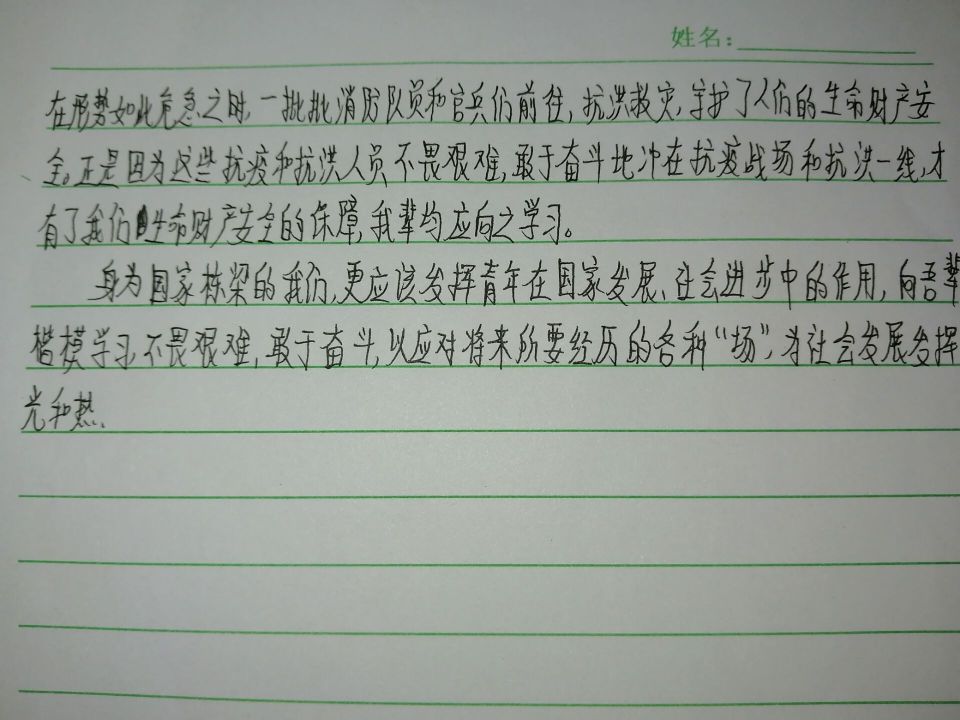 姓名：
在形势如此危急之时，一批批消防队员和官兵们前往，抗洪救灾，守护了人们的生命财产安
全。正是因为这些抗疫和抗洪人员不畏艰难，敢于奋斗地冲在抗疫战场和抗洪一线，才
有了我们生命财产安全的保障，我辈均应向之学习。
身为国家栋梁的我们，更应该发挥青年在国家发展、社会进步中的作用，向吾辈
楷模学习，不畏艰难，敢于奋斗，以应对将来所要经历的各种“场”，为社会发展发挥
光和热。